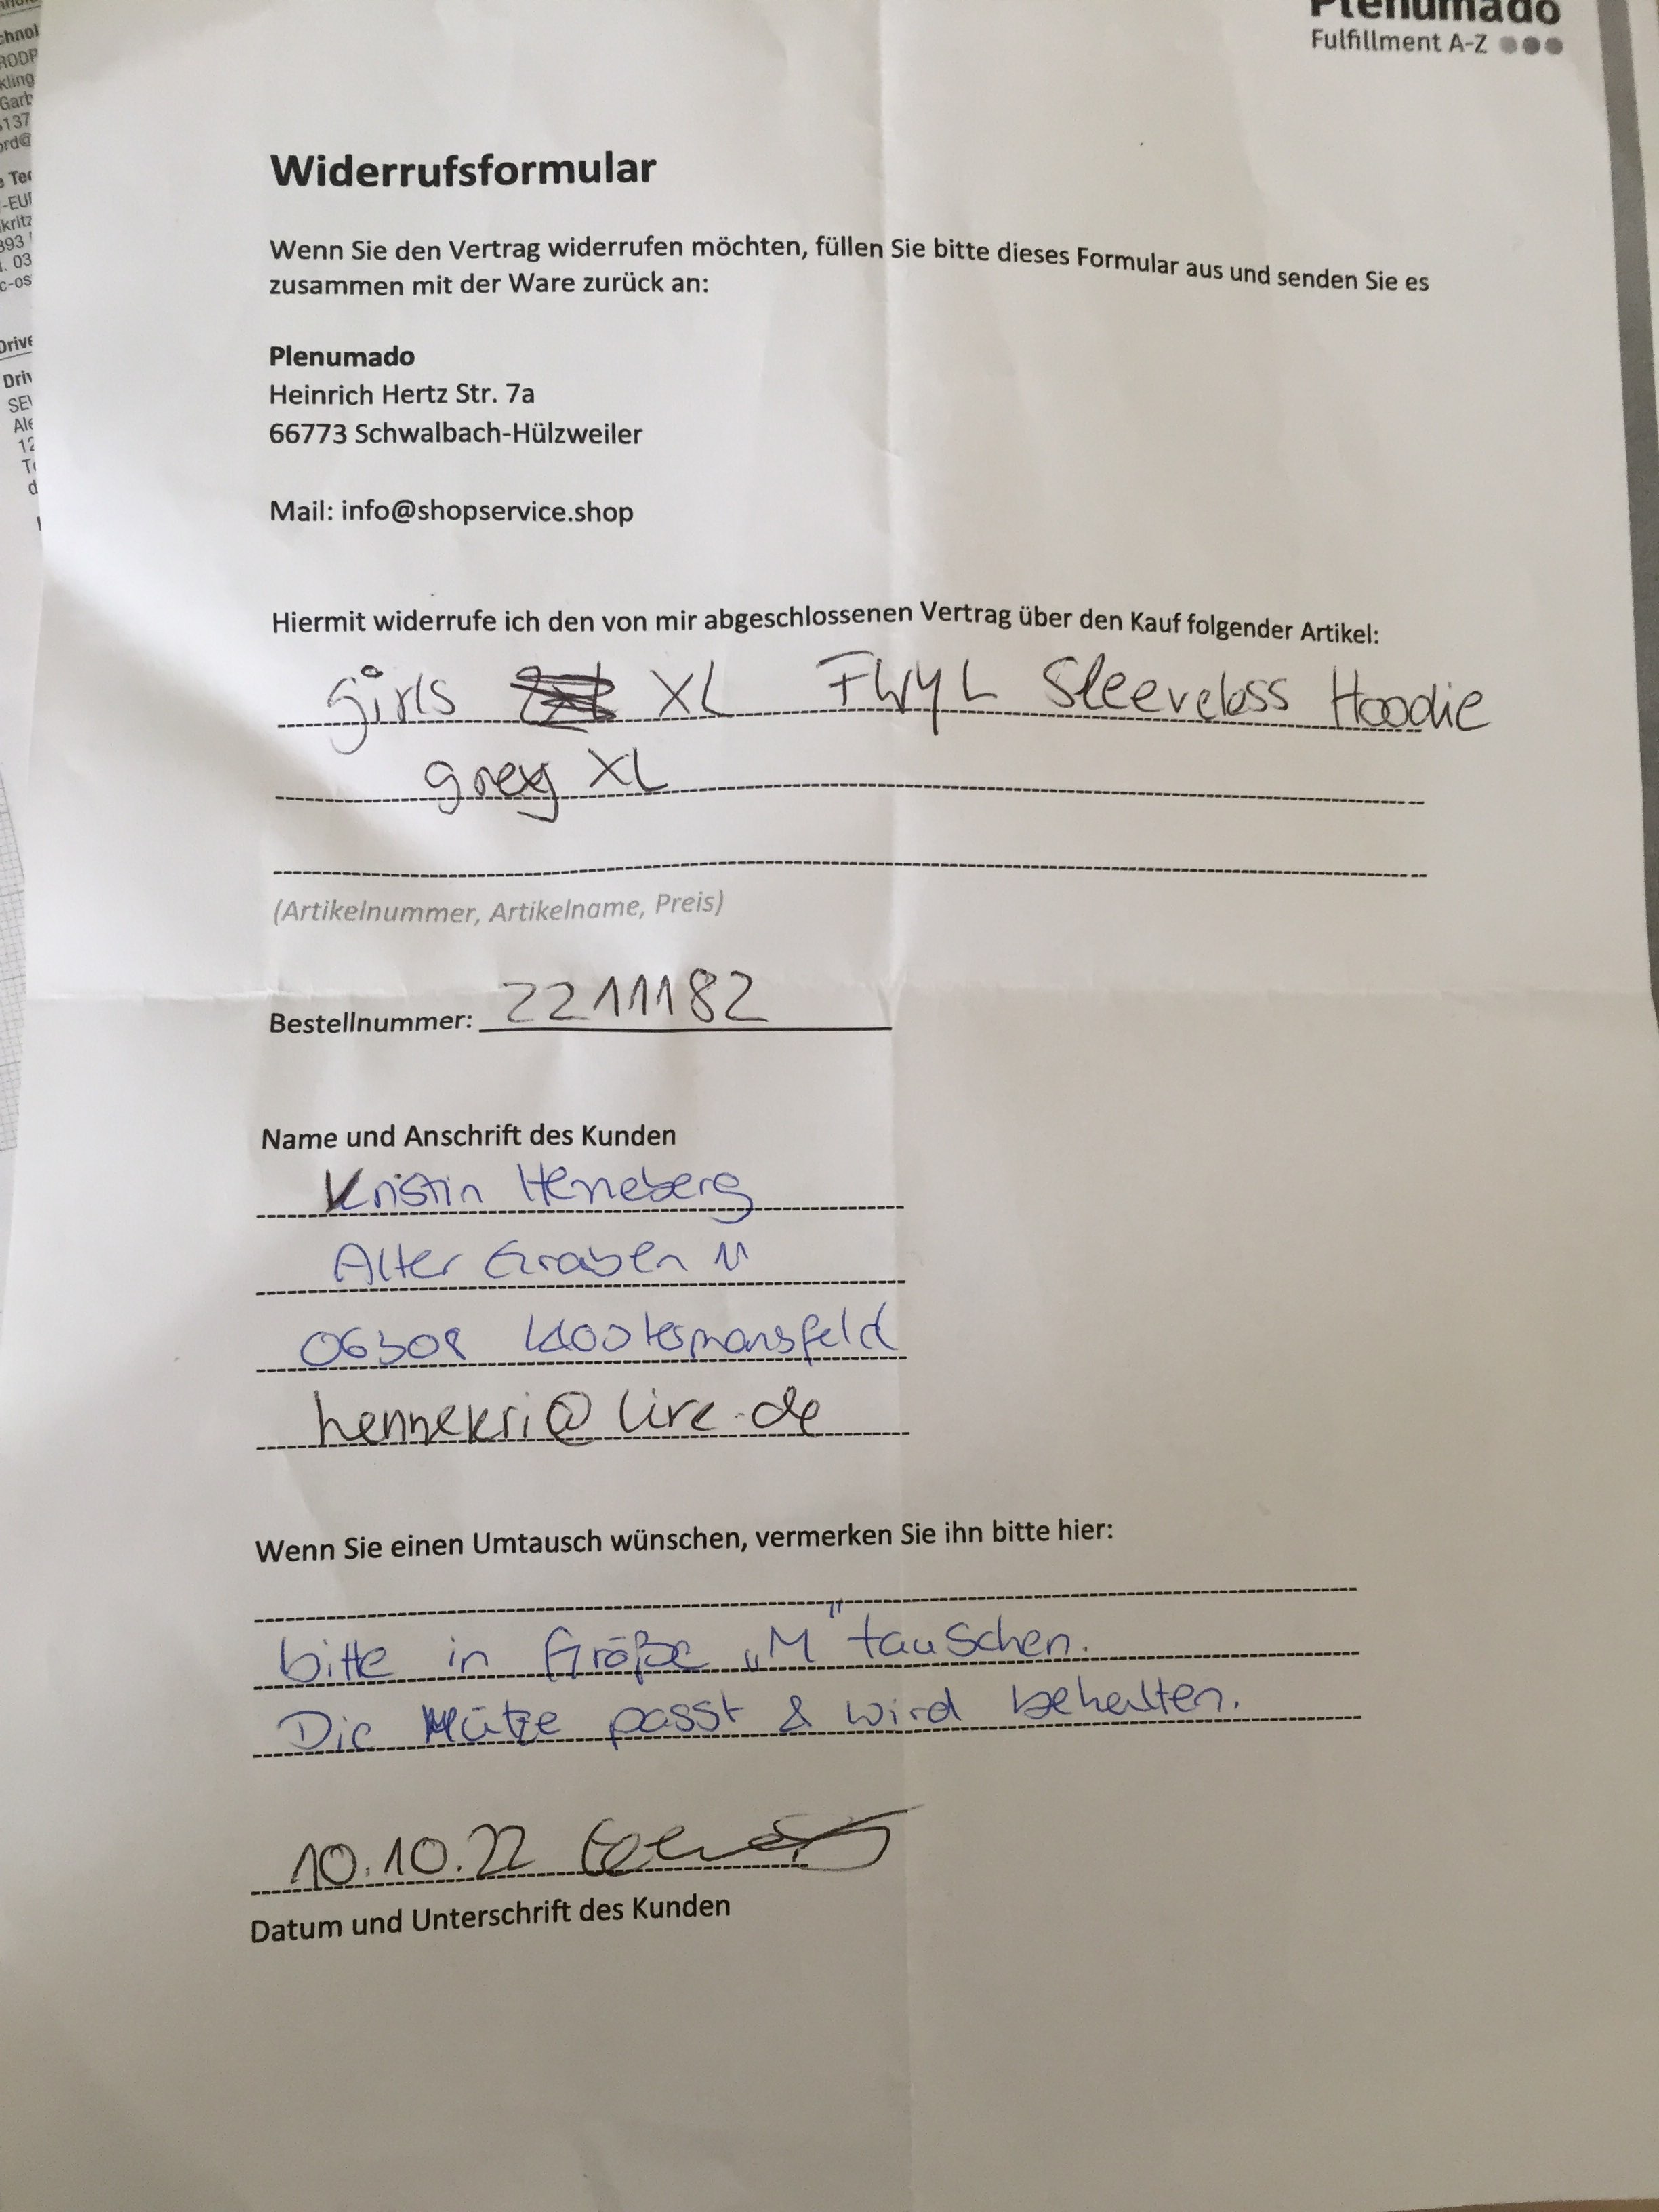 Plenumado
Fulfillment A-Z
Widerrufsformular
Wenn Sie den Vertrag widerrufen möchten, füllen Sie bitte dieses Formular aus und senden Sie es
zusammen mit der Ware zurück an:
Plenumado
Heinrich Hertz Str. 7a
66773 Schwalbach-Hülzweiler
Mail: info@shopservice.shop
Hiermit widerrufe ich den von mir abgeschlossenen Vertrag über den Kauf folgender Artikel:
girls XL FWYL Sleeveless Hoodie
grey XL
(Artikelnummer, Artikelname, Preis)
Bestellnummer: 2211182
Name und Anschrift des Kunden
Kristin Henneberg
Alter Graben 11
06308 Klostermansfeld
hennekri@live.de
Wenn Sie einen Umtausch wünschen, vermerken Sie ihn bitte hier:
bitte in Größe „M" tauschen.
Die Mütze passt & wird behalten.
10.10.22
Datum und Unterschrift des Kunden